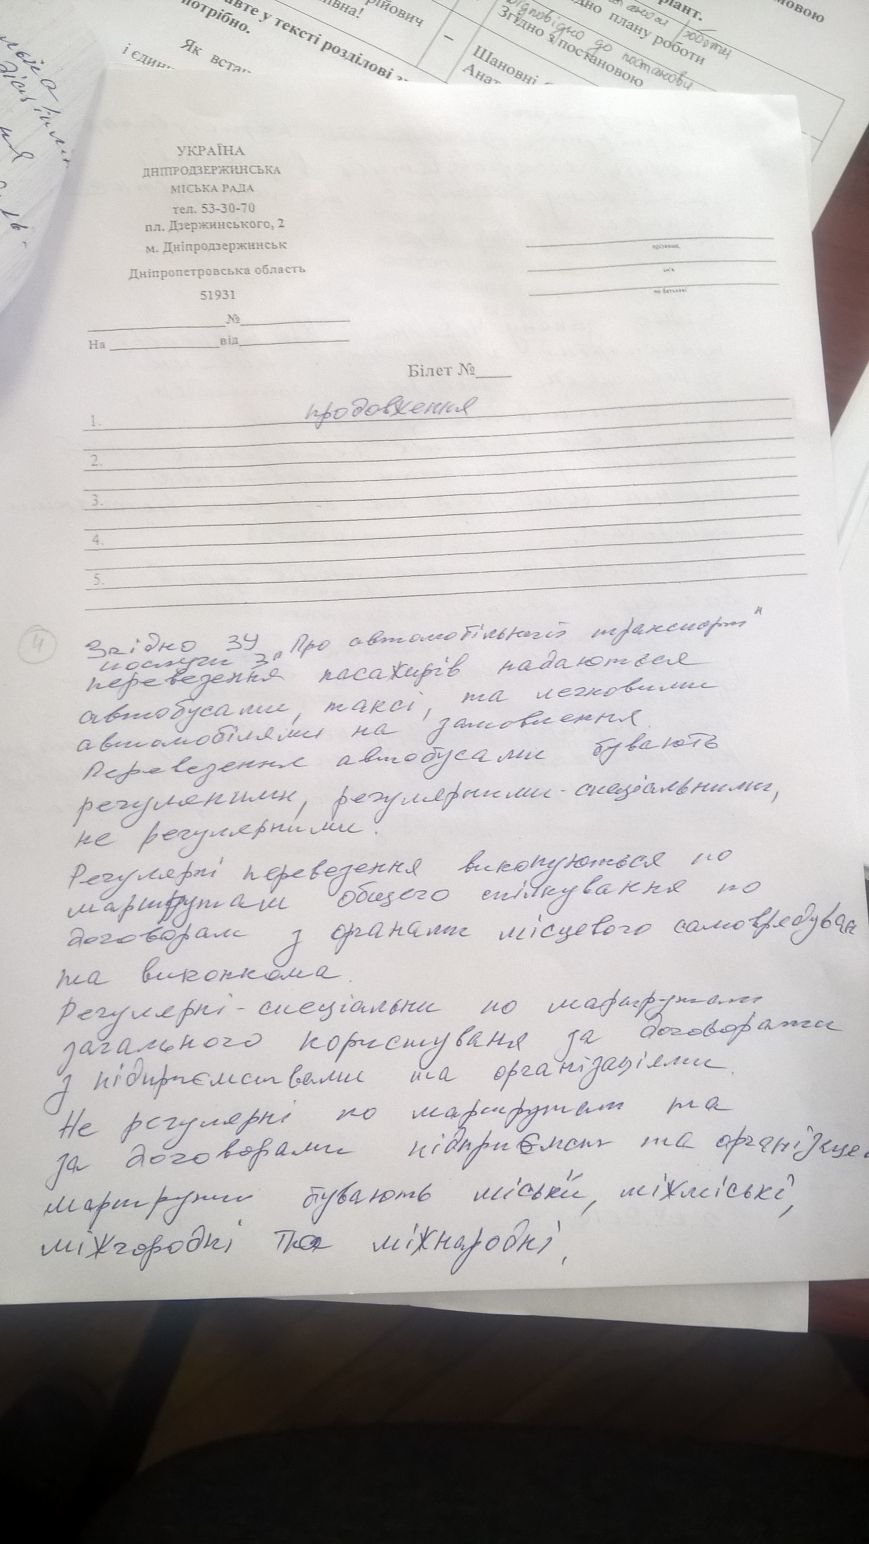 рійович
івна!
авте у тексті розділові з
потрібно.
Як вста
і єдин
ріант.
мовою
дно плану роботи
роботи
Відповідно до постанови
Згідно з постановою
–
Шановні
Анат
УКРАЇНА
ДНІПРОДЗЕРЖИНСЬКА
МІСЬКА РАДА
тел. 53-30-70
пл. Дзержинського, 2
м. Дніпродзержинськ
Дніпропетровська область
51931
№
На від
прізвище,
ім'я
по батькові
Білет №
1. продовження
2.
3.
4.
5.
4
Згідно ЗУ „Про автомобільний транспорт"
послуги з
перевезення пасажирів надаються
автобусами, таксі, та легковими
автомобілями на замовлення.
Перевезення автобусами бувають
регуляними, регулярними-спеціальними,
не регулярними.
Регулярні перевезення виконуються по
маршрутам общего спілкування по
договорам з органами місцевого самоврядуван
та виконкома.
Регулярні-спеціальни по маршрутам
загального користуваня за договорами
з підприємствами та організаціями.
Не регулярні по маршрутам та
за договорами підприємст та організаце
маршрути бувають міські, міжміські,
міжгородні та міжнародні,